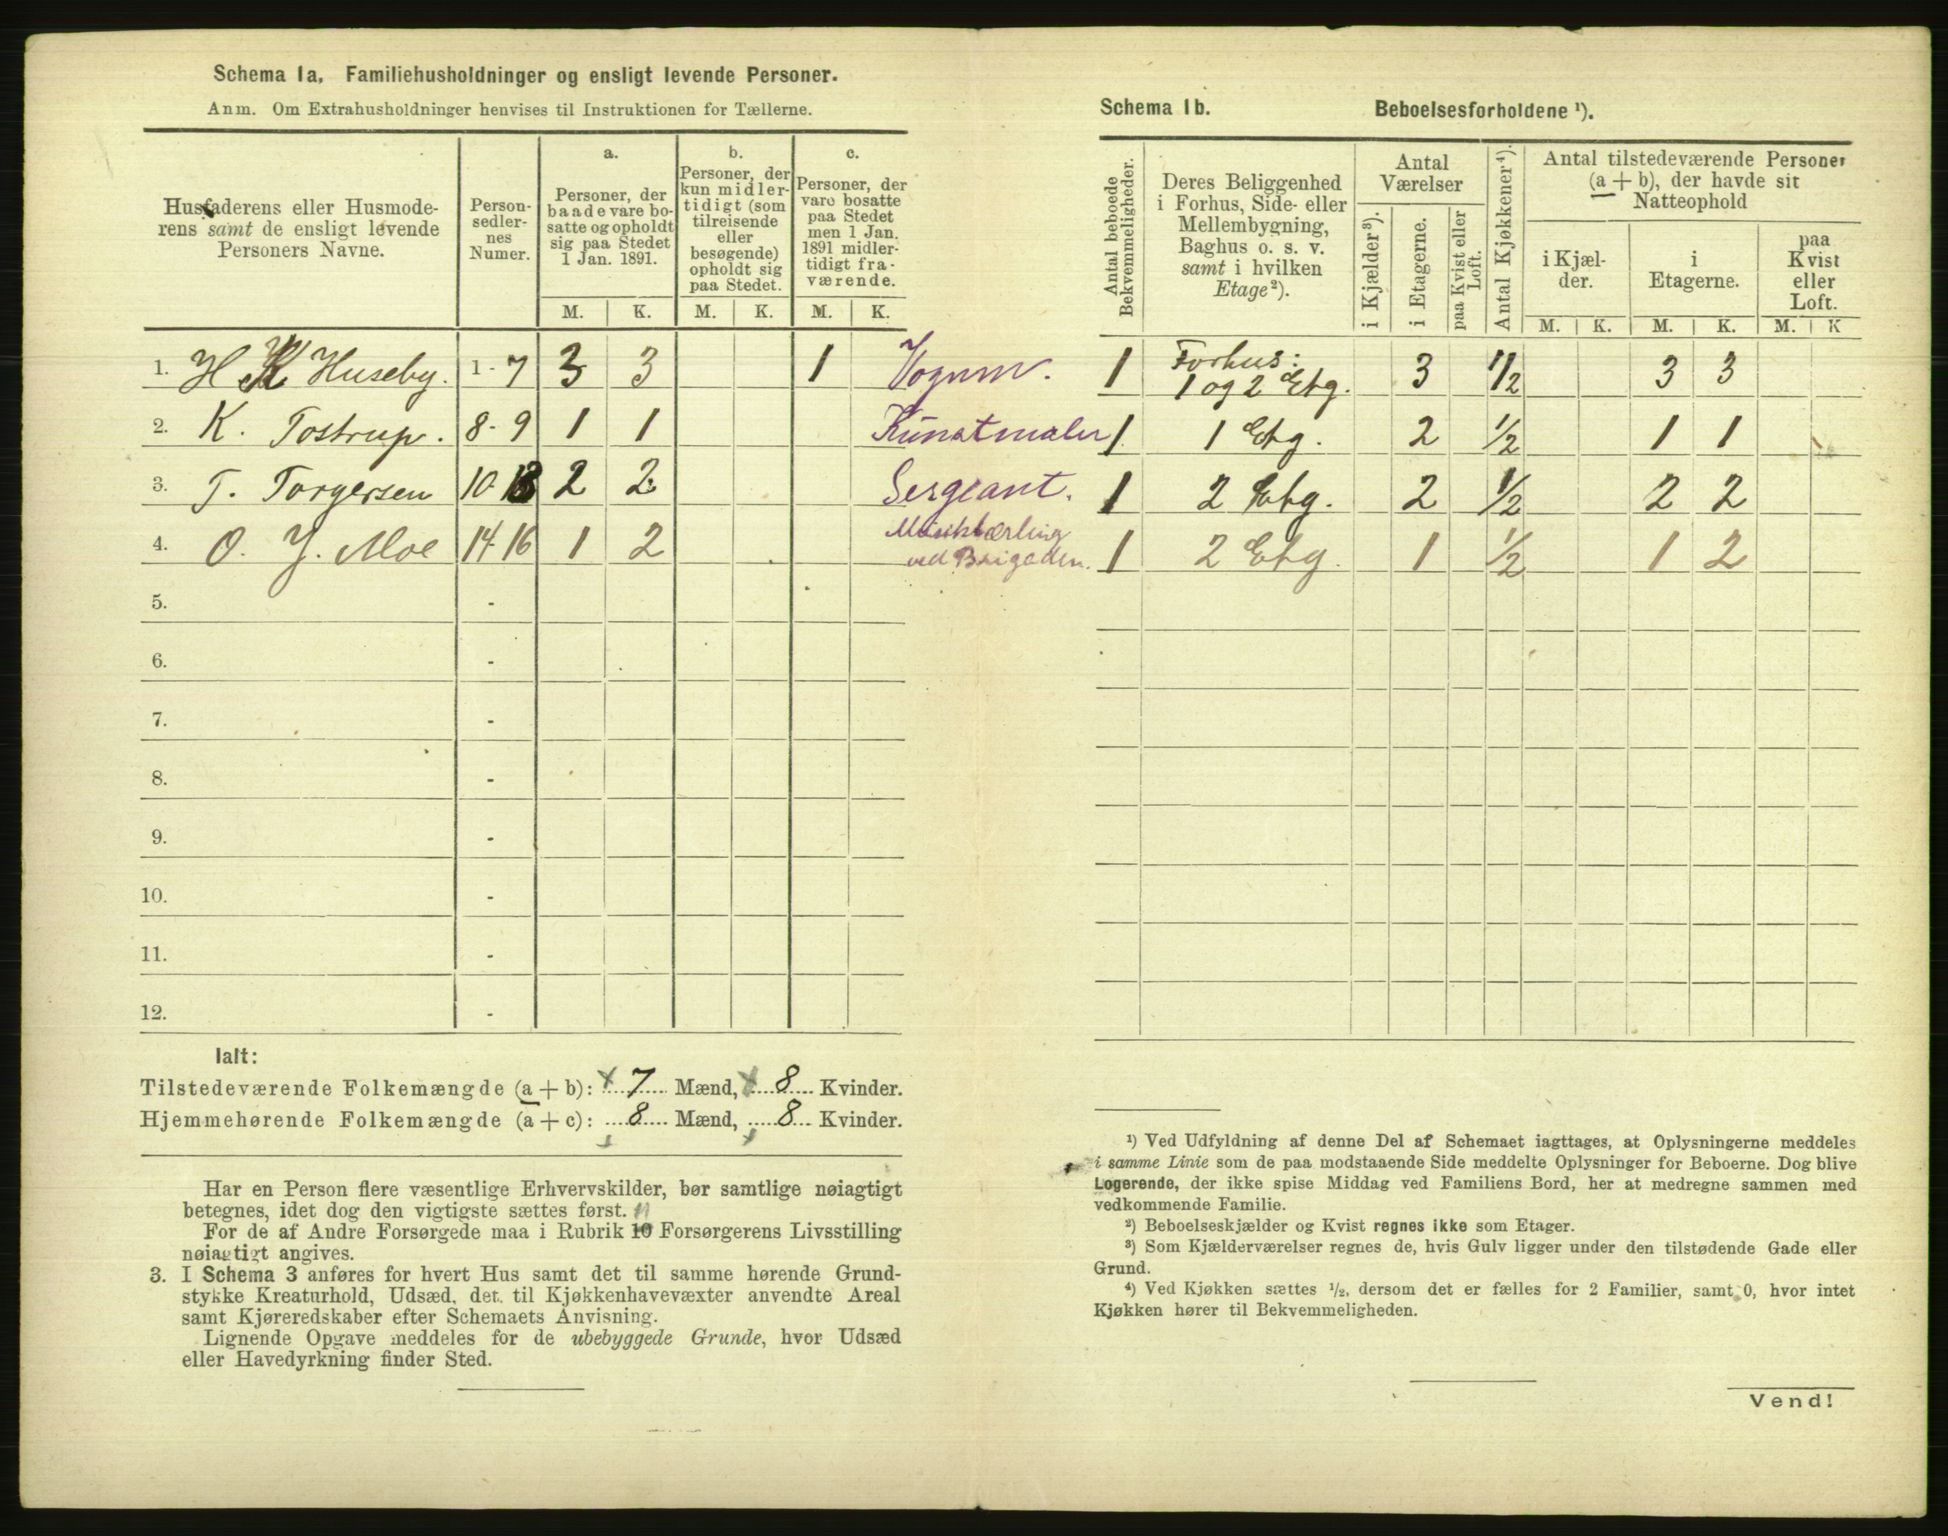 Schema 1a. Familiehusholdninger og ensligt levende Personer.
Anm. Om Extrahusholdninger henvises til Instruktionen for Tællerne.
Husfaderens eller Husmode-
rens samt de ensligt levende
Personers Navne.
Person-
sedler-
nes
Numer.
a.
Personer, der
baade vare bo-
satte og opholdt
sig paa Stedet
1 Jan. 1891.
b.
Personer, der
kun midler-
tidigt (som
tilreisende
eller
besøgende)
opholdt sig
paa Stedet.
c.
Personer, der
vare bosatte
paa Stedet
men 1 Jan.
1891 midler-
tidigt fra-
værende.
M. K. M. K. M. K.
1. H K Huseby. 1 - 7 3 3 1
2. K. Tostrup. 8 - 9 1 1 Kunstmaler
3. T. Torgersen 10 13 2 2 Sergeant.
4. O. J. Moe 14 16 1 2
ved Brigaden.
5. -
6. -
7. -
8. -
9. -
10. -
11. -
12. -
Ialt:
Tilstedeværende Folkemængde (a + b): x 7 Mænd, x 8 Kvinder.
Hjemmehørende Folkemængde (a + c): 8 Mænd, 8 Kvinder.
Har en Person flere væsentlige Erhvervskilder, bør samtlige nøiagtigt
betegnes, idet dog den vigtigste sættes først.
For de af Andre Forsørgede maa i Rubrik 10 Forsørgerens Livsstilling
nøiagtigt angives.
3. I Schema 3 anføres for hvert Hus samt det til samme hørende Grund-
stykke Kreaturhold, Udsæd, det til Kjøkkenhavevæxter anvendte Areal
samt Kjøreredskaber efter Schemaets Anvisning.
Lignende Opgave meddeles for de ubebyggede Grunde, hvor Udsæd
eller Havedyrkning finder Sted.
Schema 1b. Beboelsesforholdene ¹).
Antal beboede
Bekvemmeligheder.
Deres Beliggenhed
i Forhus, Side- eller
Mellembygning,
Baghus o. s. v.
samt i hvilken
Etage ²).
Antal
Værelser
i Kjælder ³).
i Etagerne.
paa Kvist eller
Loft.
Antal Kjøkkener ⁴).
Antal tilstedeværende Personer
(a + b), der havde sit
Natteophold
i Kjæl-
der.
i
Etagerne.
paa
Kvist
eller
Loft.
M. K. M. K. M. K
1 Forhus:
1 og 2 Etg. 3 1/2 3 3
1. 1 Etg. 2 1/2 1 1
1 2 Etg. 2 1/2 2 2
1 2 Etg. 1 1/2 1 2
¹) Ved Udfyldning af denne Del af Schemaet iagttages, at Oplysningerne meddeles
i samme Linie som de paa modstaaende Side meddelte Oplysninger for Beboerne. Dog blive
Logerende, der ikke spise Middag ved Familiens Bord, her at medregne sammen med
vedkommende Familie.
²) Beboelseskjælder og Kvist regnes ikke som Etager.
³) Som Kjælderværelser regnes de, hvis Gulv ligger under den tilstødende Gade eller
Grund.
⁴) Ved Kjøkken sættes ½, dersom det er fælles for 2 Familier, samt 0, hvor intet
Kjøkken hører til Bekvemmeligheden.
Vend!